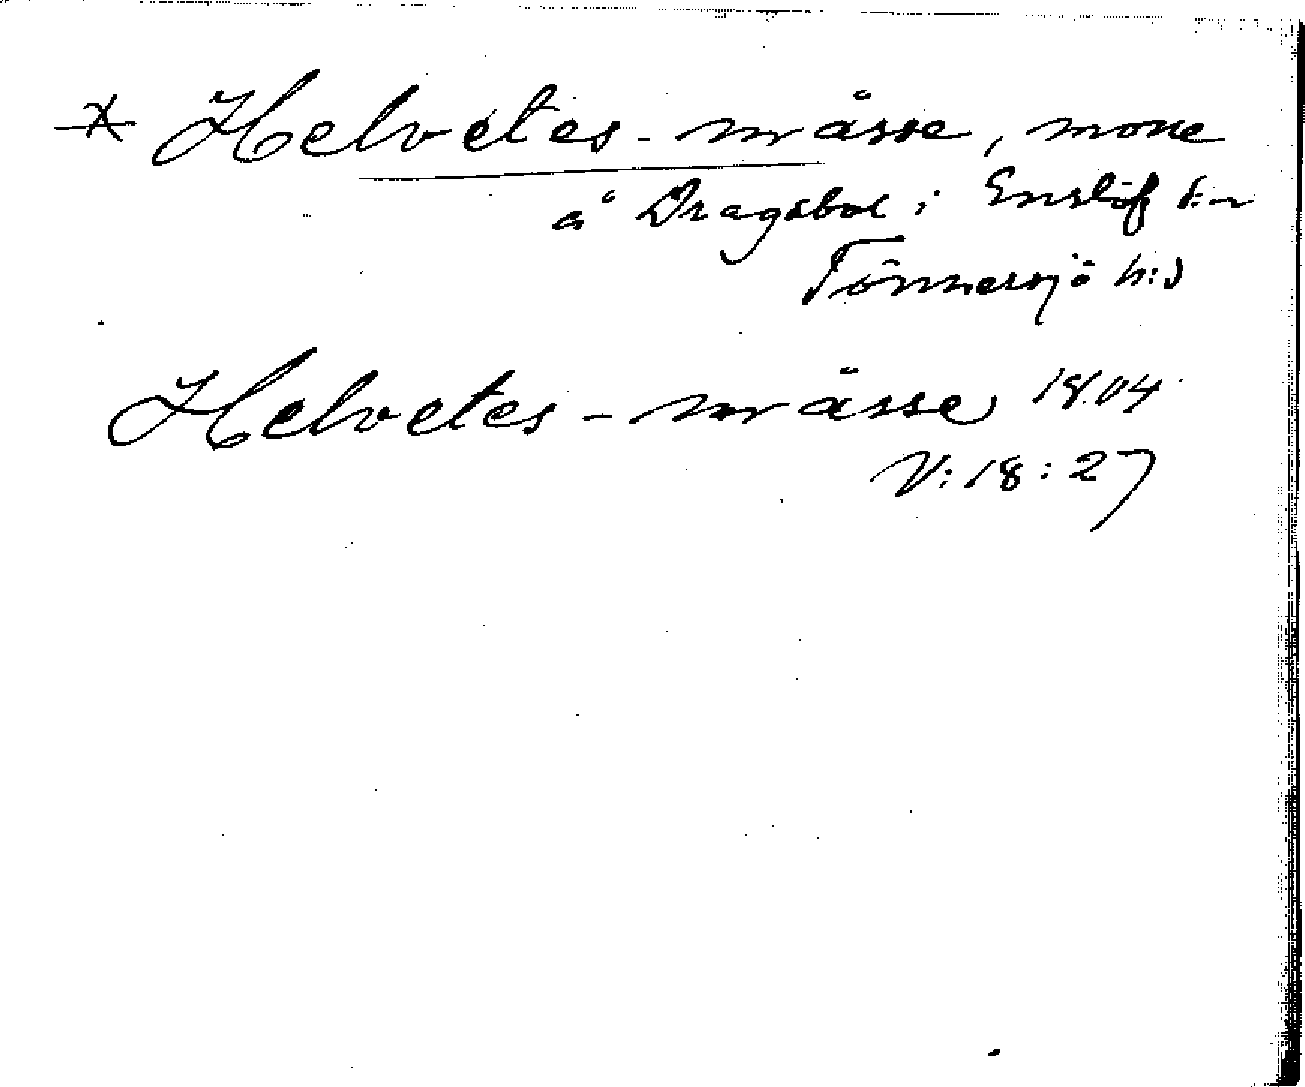 * Helvetes-måsse, mosse
å Dragsbol i Enslöf s:n
Tönnersjö h:d
Helvetes-måsse 1804
V:18:27